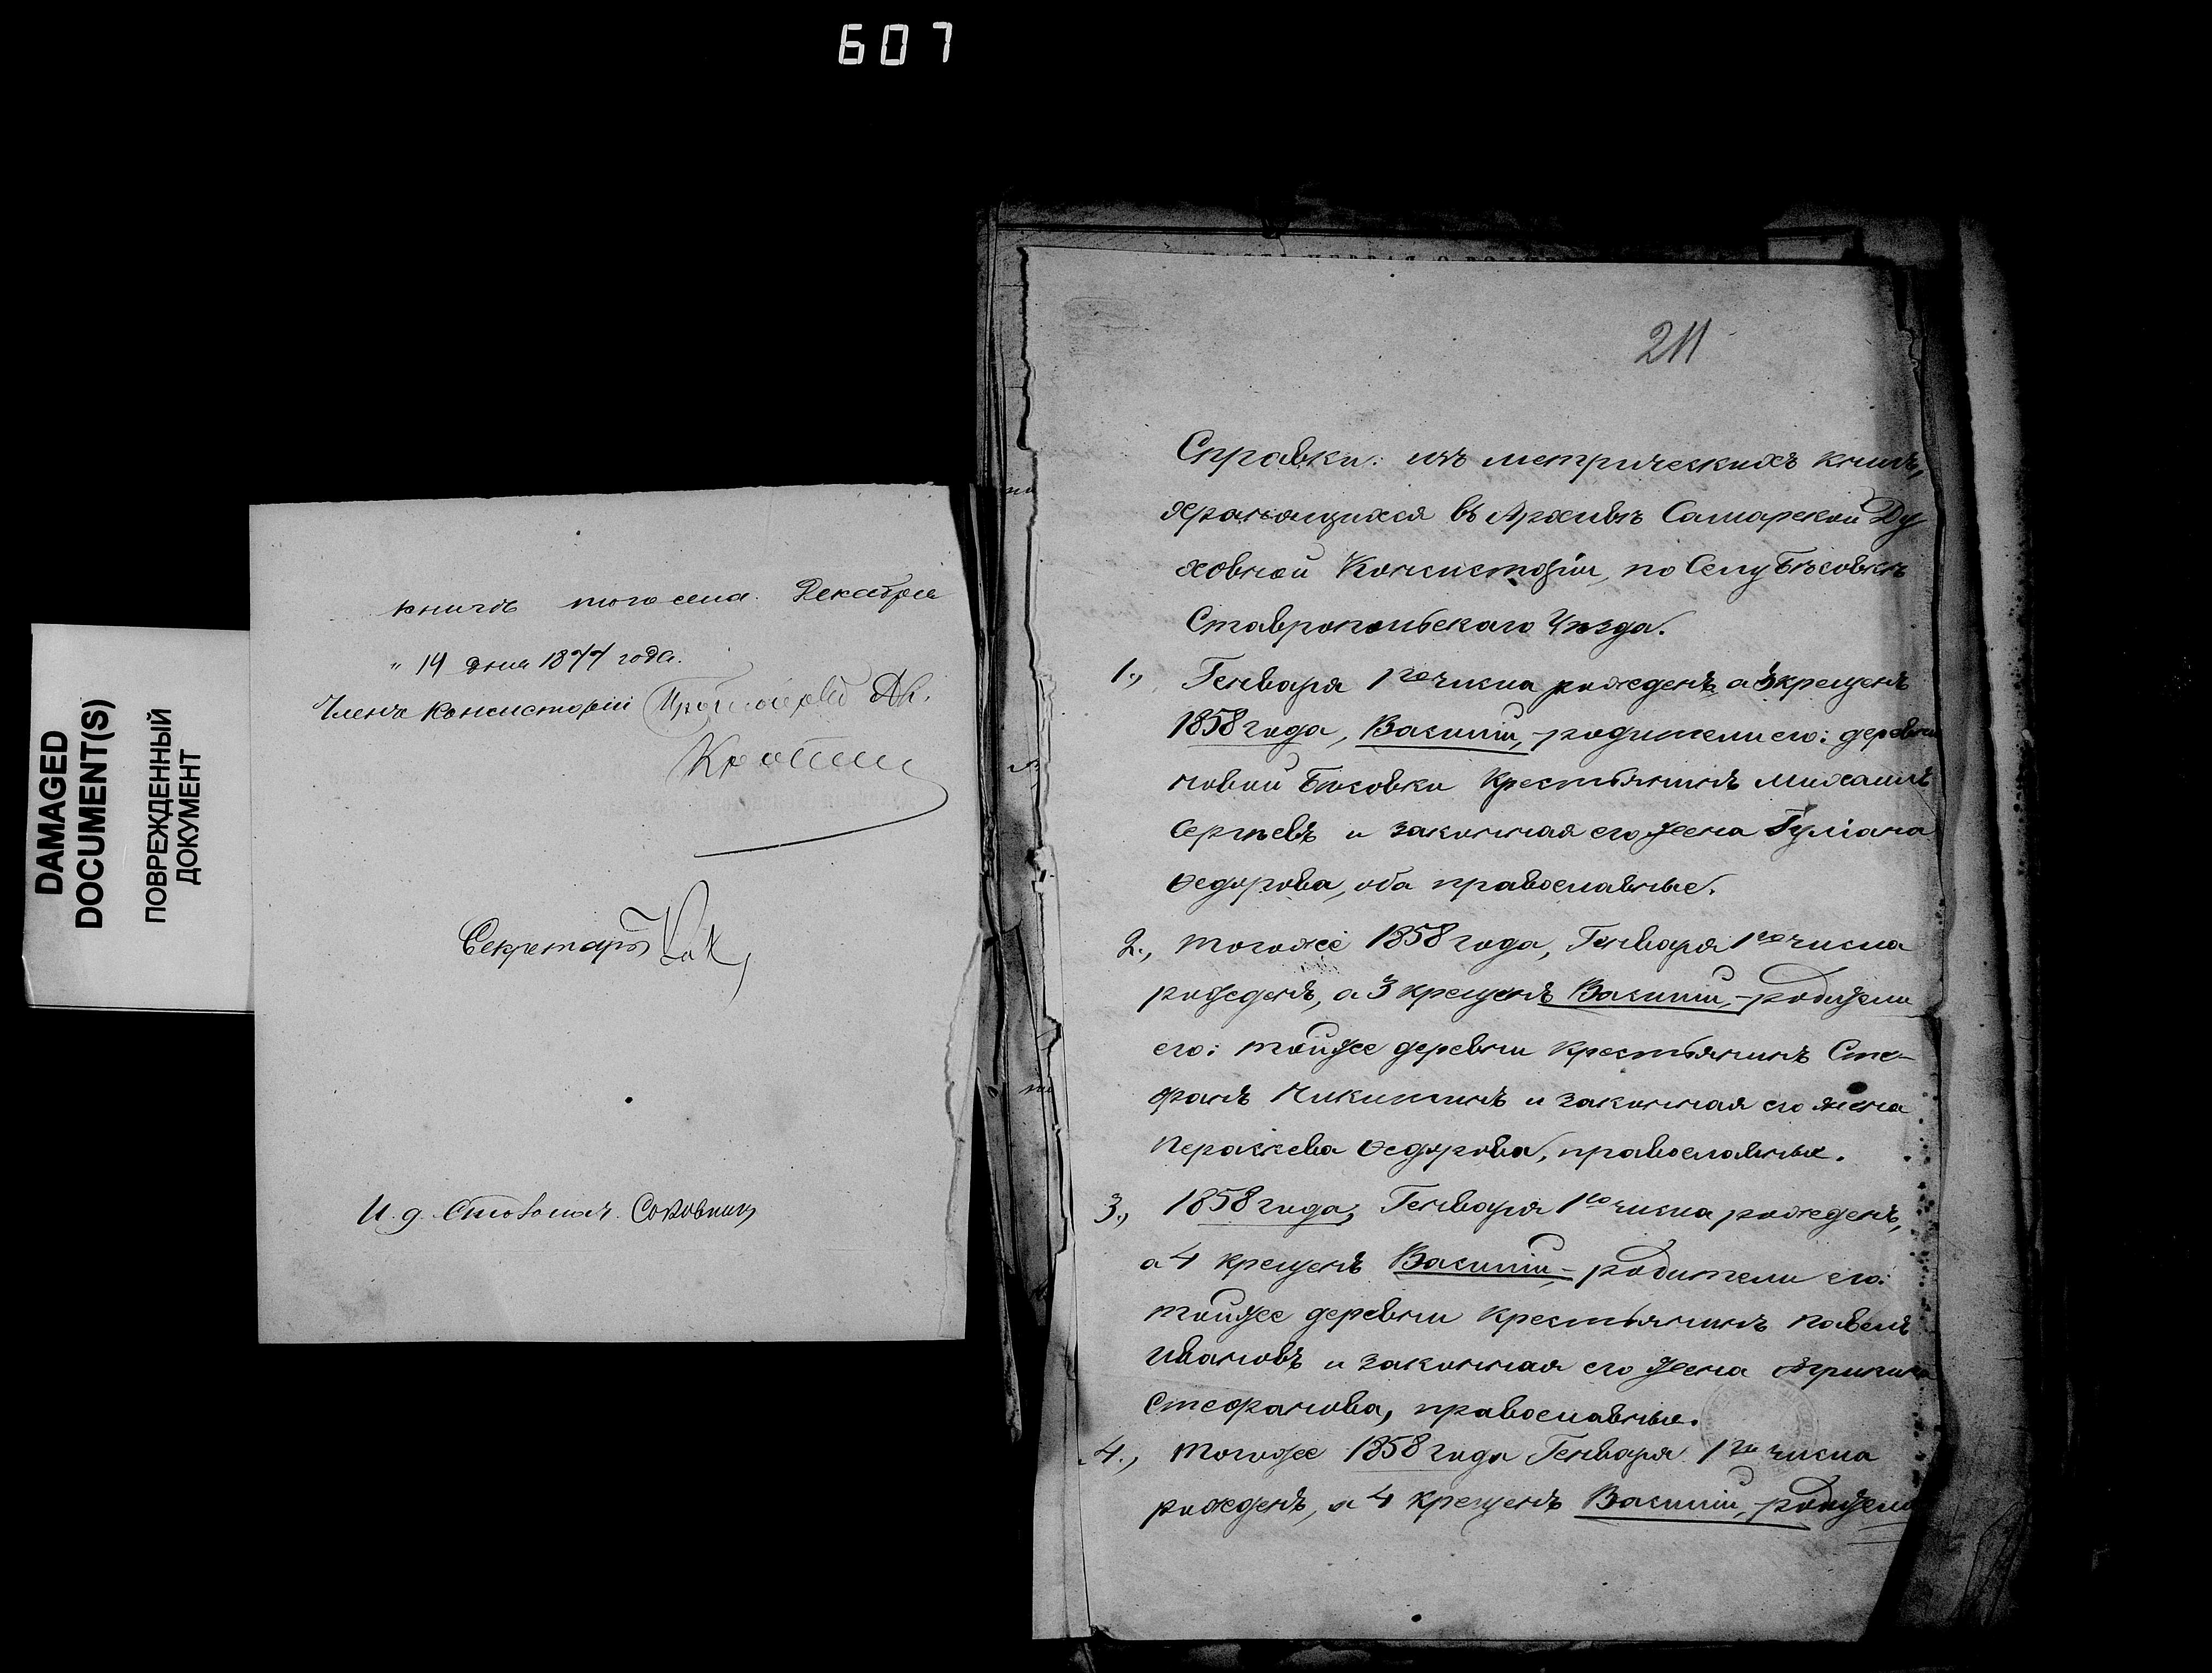 607
DAMAGED
DOCUMENT(S)
ПОВРЕЖДЕННЫЙ
ДОКУМЕНТ
книгъ того села. Декабря
" 19 дня 1877 года.
Членъ Консисторіи Протоіерей
Секретарь
И. д. Столонач. Соковнинъ
211
Справки: изъ метрическихъ книгъ,
хранящихся въ Архивѣ Самарской Ду
ховной Консисторіи, по селу Бѣсовкѣ
Ставропольскаго Уѣзда.
1., Генваря 1го числа рожденъ, а 3 крещенъ
1858 года, Василій, - родители его: деревни
новой Бѣсовки крестьянинъ Михаилъ
Сергѣевъ и законная его жена Іуліана
Ѳедорова, оба православные.
2., Тогоже 1858 года, Генваря 1го числа
рожденъ, а 3 крещенъ Василій, - родители
его: тойже деревни крестьянинъ Сте-
фанъ Никитинъ и законная его жена
Параскева Ѳедорова, православные.
3., 1858 года, Генваря 1го числа рожденъ,
а 4 крещенъ Василій, - родители его:
тойже деревни крестьянинъ Павелъ
Ивановъ и законная его жена
Стефанова, православные.
4., Тогоже 1858 года Генваря 1го числа
рожденъ, а 4 крещенъ Василій, - родители